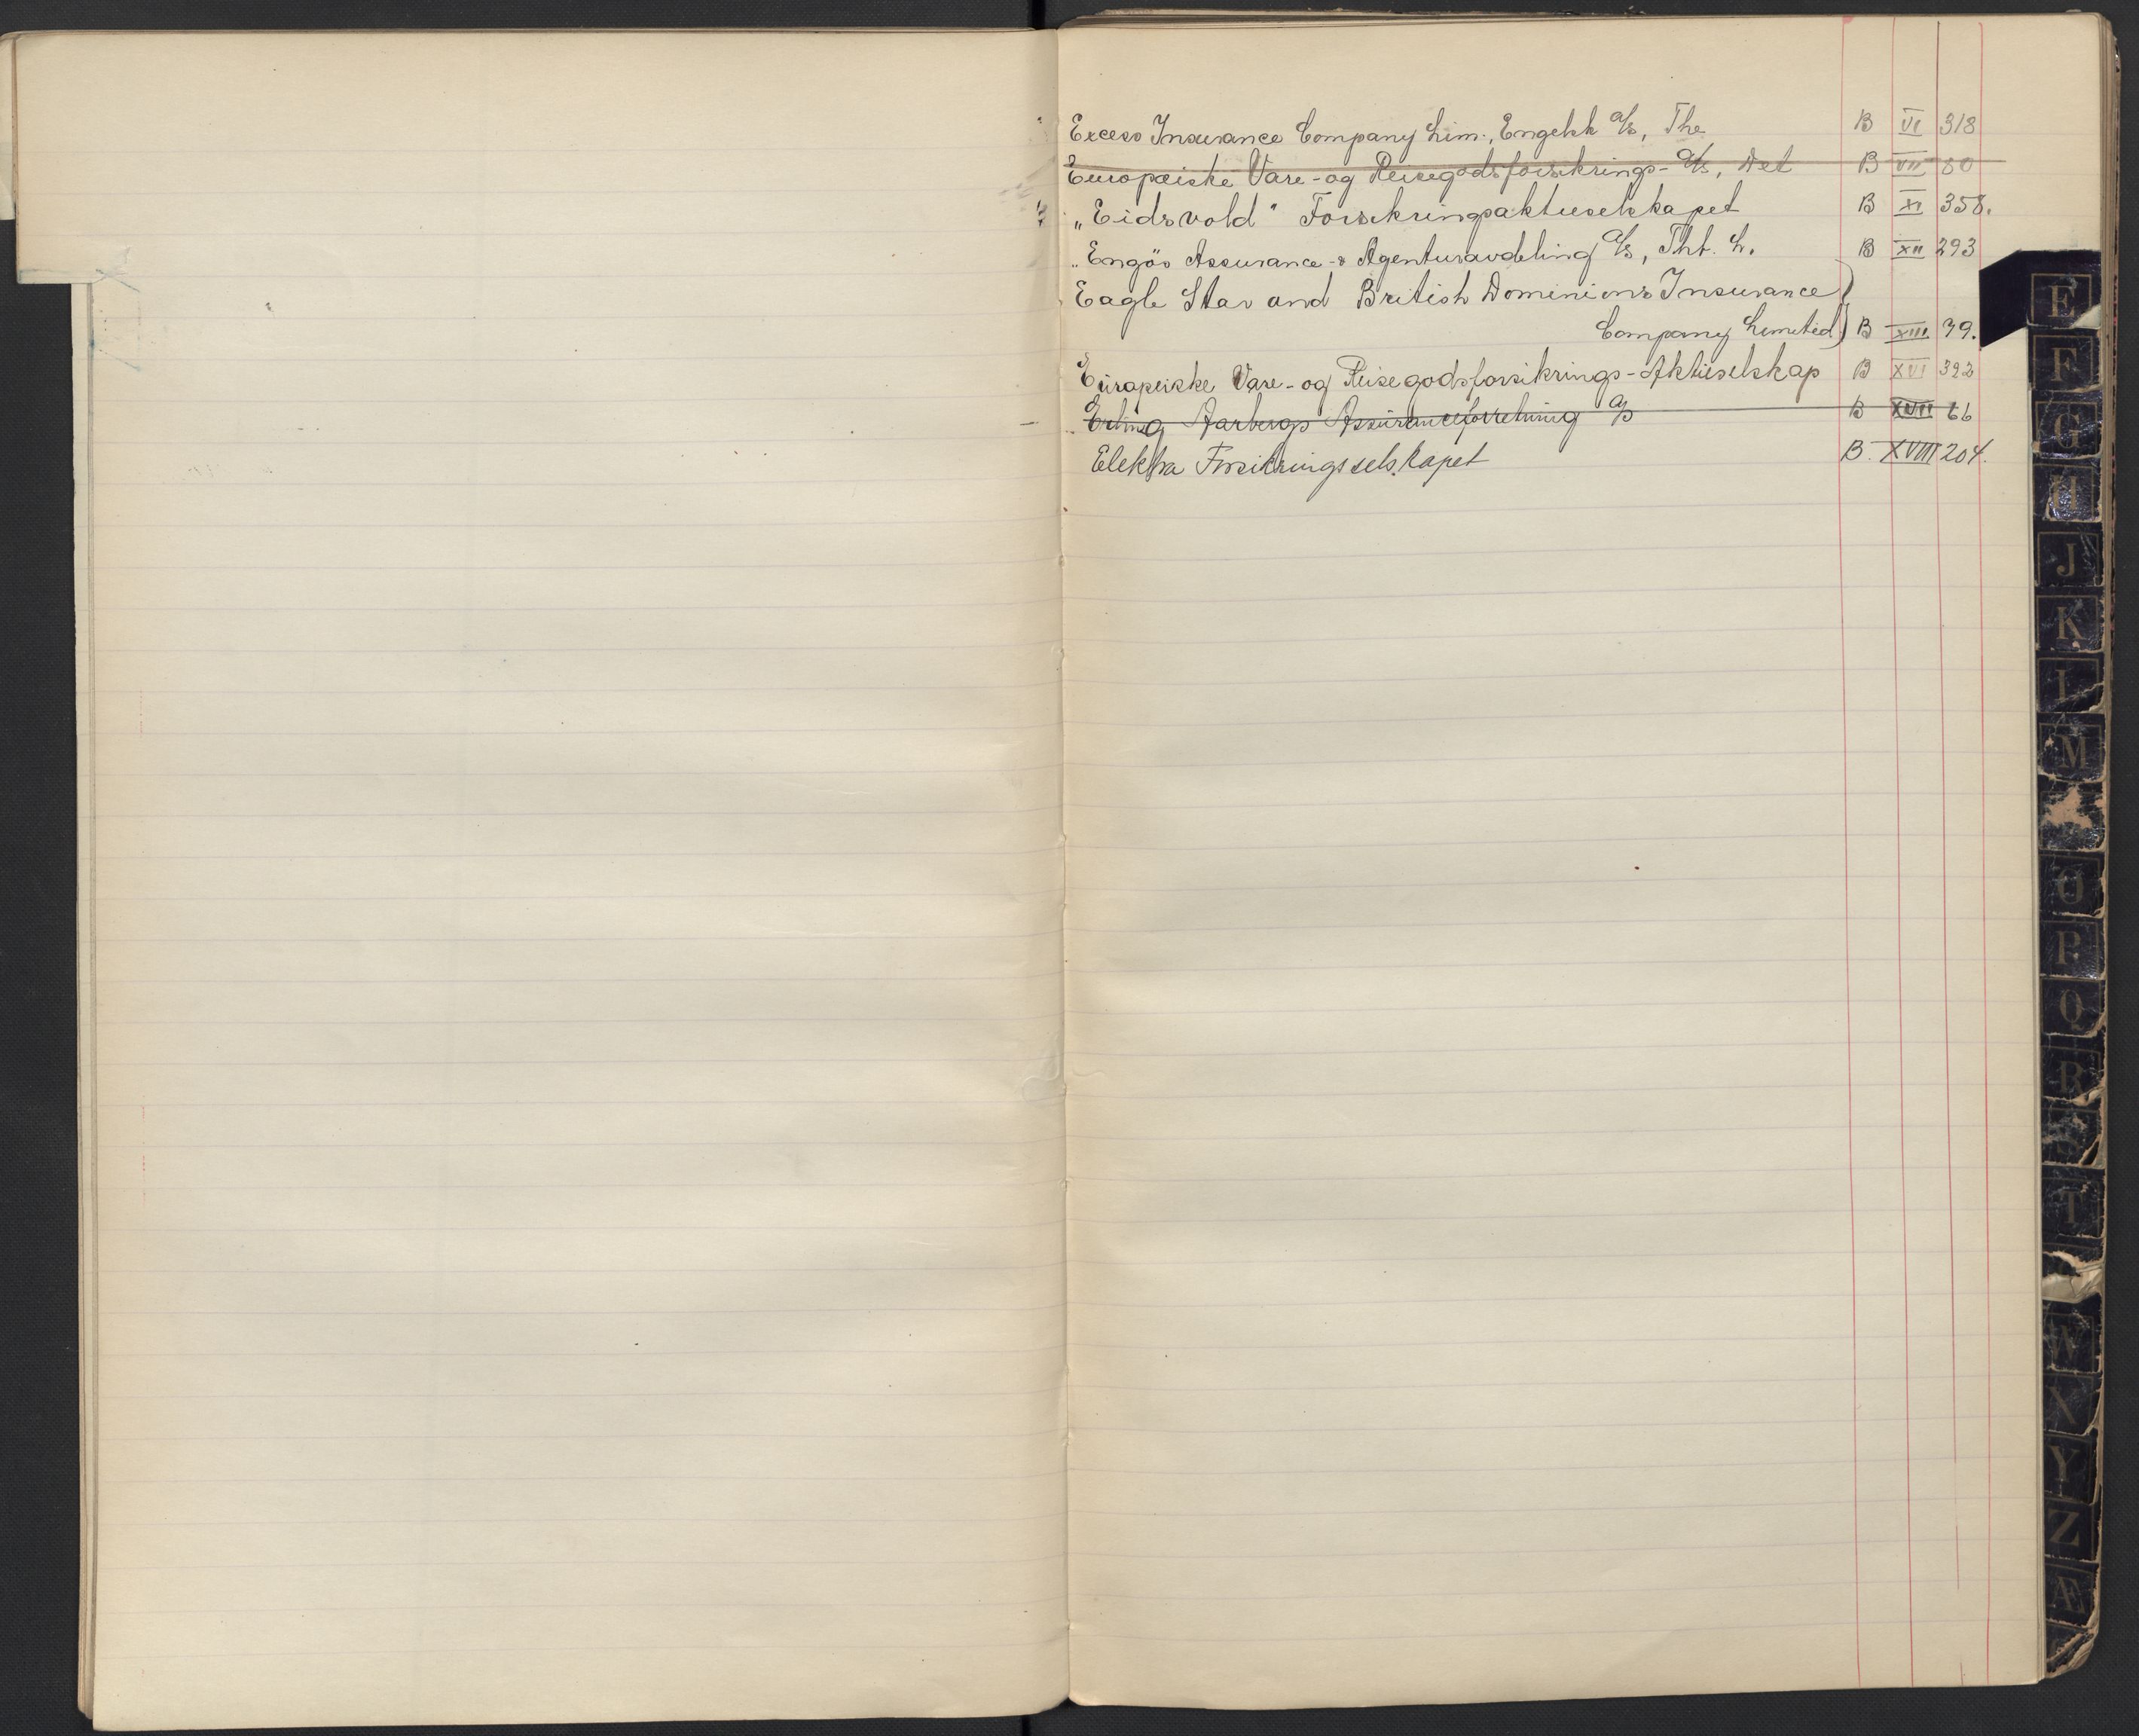 Excess Insurance Company Lim., Engelsk A/s, The B VI 318
Europæiske Vare- og Reisegodsforsikrings- A/s, Det B VII 80
„Eidsvold" Forsikringsaktieselskapet B XI 358.
Engös Assurance- & Agenturavdeling A/s, Tht. L. B XII 293
Eagle Star and British Dominions Insurance
Company Limited B XIII 39.
Europeiske Vare- og Reisegodsforsikrings-Aktieselskap B XVI 392
Erling Aarbergs Assuranceforretning A/S B XVII 66
Elektra Forsikringsselskapet B. XVIII 204.
E
F
G
H
J
K
L
M
O
P
Q
R
S
T
W
X
Y
Z
Æ